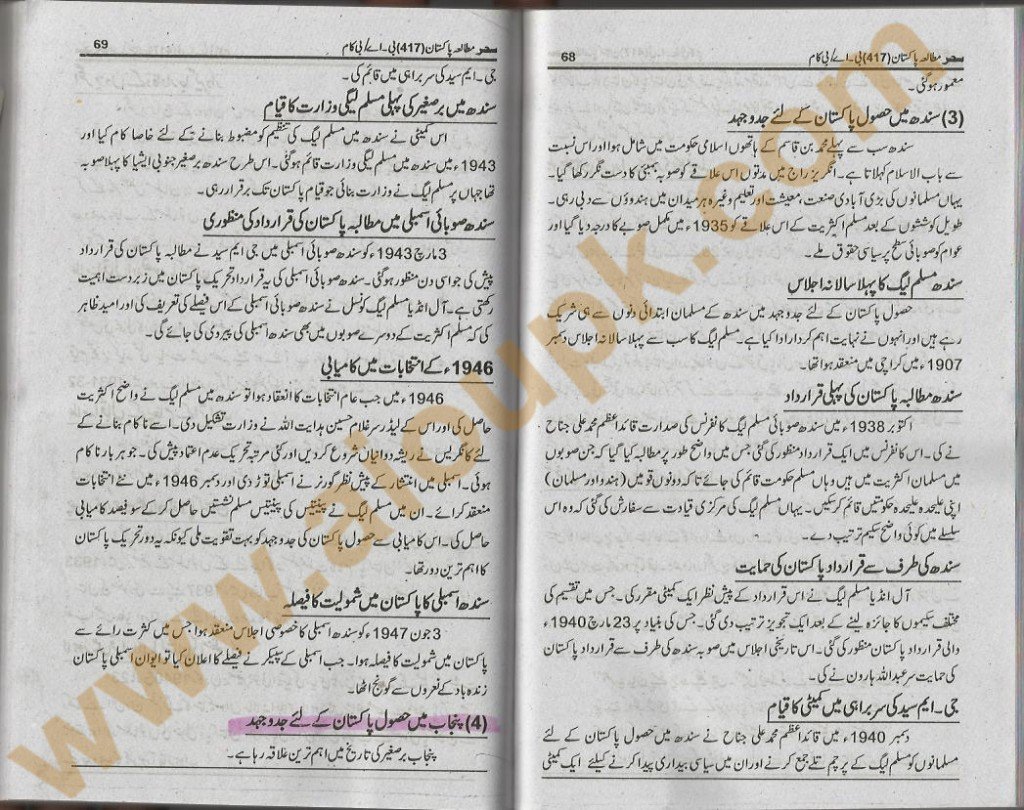 68
سحر مطالعہ پاکستان (417) بی۔اے/بی کام
معمور ہو گئی۔
(3) سندھ میں حصول پاکستان کے لئے جدوجہد
سندھ سب سے پہلے محمد بن قاسم کے ہاتھوں اسلامی حکومت میں شامل ہوا اور اس نسبت
سے باب الاسلام کہلاتا ہے۔ انگریز راج میں مدتوں اس علاقے کو صوبہ بمبئی کا دست نگر رکھا گیا۔
یہاں مسلمانوں کی بڑی آبادی صنعت، معیشت اور تعلیم وغیرہ ہر میدان میں ہندوؤں سے دبی رہی۔
طویل کوششوں کے بعد مسلم اکثریت کے اس علاقے کو 1935ء میں مکمل صوبے کا درجہ دیا گیا اور
عوام کو صوبائی سطح پر سیاسی حقوق ملے۔
سندھ مسلم لیگ کا پہلا سالانہ اجلاس
حصول پاکستان کے لئے جدوجہد میں سندھ کے مسلمان ابتدائی دنوں سے ہی شریک
رہے ہیں اور انہوں نے نہایت اہم کردار ادا کیا ہے۔ مسلم لیگ کا سب سے پہلا سالانہ اجلاس دسمبر
1907ء میں کراچی میں منعقد ہوا تھا۔
سندھ مطالبہ پاکستان کی پہلی قرارداد
اکتوبر 1938ء میں سندھ صوبائی مسلم لیگ کانفرنس کی صدارت قائداعظم محمد علی جناح
نے کی۔ اس کانفرنس میں ایک قرارداد منظور کی گئی جس میں واضح طور پر مطالبہ کیا گیا کہ جن صوبوں
میں مسلمان اکثریت میں ہیں وہاں مسلم حکومت قائم کی جائے تاکہ دونوں قومیں (ہندو اور مسلمان)
اپنی علیحدہ علیحدہ حکومتیں قائم کر سکیں۔ یہاں مسلم لیگ کی مرکزی قیادت سے سفارش کی گئی کہ وہ اس
سلسلے میں کوئی واضح سکیم ترتیب دے۔
سندھ کی طرف سے قرارداد پاکستان کی حمایت
آل انڈیا مسلم لیگ نے اس قرارداد کے پیش نظر ایک کمیٹی مقرر کی۔ جس میں تقسیم کی
مختلف سکیموں کا جائزہ لینے کے بعد ایک تجویز ترتیب دی گئی۔ جس کی بنیاد پر 23 مارچ 1940ء
والی قرارداد پاکستان منظور کی گئی۔ اس تاریخی اجلاس میں صوبہ سندھ کی طرف سے قرارداد پاکستان
کی حمایت سر عبداللہ ہارون نے کی۔
جی۔ایم سید کی سربراہی میں کمیٹی کا قیام
دسمبر 1940ء میں قائداعظم محمد علی جناح نے سندھ میں حصول پاکستان کے لئے
مسلمانوں کو مسلم لیگ کے پرچم تلے جمع کرنے اور ان میں سیاسی بیداری پیدا کرنے کیلئے ایک کمیٹی
69
سحر مطالعہ پاکستان (417) بی۔اے/بی کام
جی۔ایم سید کی سربراہی میں قائم کی۔
سندھ میں برصغیر کی پہلی مسلم لیگی وزارت کا قیام
اس کمیٹی نے سندھ میں مسلم لیگ کی تنظیم کو مضبوط بنانے کے لئے خاصا کام کیا اور
1943ء میں سندھ میں مسلم لیگی وزارت قائم ہو گئی۔ اس طرح سندھ برصغیر جنوبی ایشیا کا پہلا صوبہ
تھا جہاں پر مسلم لیگ نے وزارت بنائی جو قیام پاکستان تک برقرار رہی۔
سندھ صوبائی اسمبلی میں مطالبہ پاکستان کی قرارداد کی منظوری
3 مارچ 1943ء کو سندھ صوبائی اسمبلی میں جی ایم سید نے مطالبہ پاکستان کی قرارداد
پیش کی جو اسی دن منظور ہو گئی۔ سندھ صوبائی اسمبلی کی یہ قرارداد تحریک پاکستان میں زبردست اہمیت
رکھتی ہے۔ آل انڈیا مسلم لیگ کونسل نے سندھ صوبائی اسمبلی کے اس فیصلے کی تعریف کی اور امید ظاہر
کی کہ مسلم اکثریت کے دوسرے صوبوں میں بھی سندھ اسمبلی کی پیروی کی جائے گی۔
1946ء کے انتخابات میں کامیابی
1946ء میں جب عام انتخابات کا انعقاد ہوا تو سندھ میں مسلم لیگ نے واضح اکثریت
حاصل کی اور اس کے لیڈر سر غلام حسین ہدایت اللہ نے وزارت تشکیل دی۔ اسے ناکام بنانے کے
لئے کانگریس نے ریشہ دوانیاں شروع کر دیں اور کئی مرتبہ تحریک عدم اعتماد پیش کی۔ جو ہر بار ناکام
ہوئی۔ اسمبلی میں انتشار کے پیش نظر گورنر نے اسمبلی توڑ دی اور دسمبر 1946ء میں نئے انتخابات
منعقد کرائے۔ ان میں مسلم لیگ نے پینتیس کی پینتیس مسلم نشستیں حاصل کر کے سو فیصد کامیابی
حاصل کی۔ اس کامیابی سے حصول پاکستان کی جدوجہد کو بہت تقویت ملی کیونکہ یہ دور تحریک پاکستان
کا اہم ترین دور تھا۔
سندھ اسمبلی کا پاکستان میں شمولیت کا فیصلہ
3 جون 1947ء کو سندھ اسمبلی کا خصوصی اجلاس منعقد ہوا جس میں کثرت رائے سے
پاکستان میں شمولیت کا فیصلہ ہوا۔ جب اسمبلی کے سپیکر نے فیصلے کا اعلان کیا تو ایوان اسمبلی پاکستان
زندہ باد کے نعروں سے گونج اٹھا۔
(4) پنجاب میں حصول پاکستان کے لئے جدوجہد
پنجاب برصغیر کی تاریخ میں اہم ترین علاقہ رہا ہے۔
www.aioupk.com